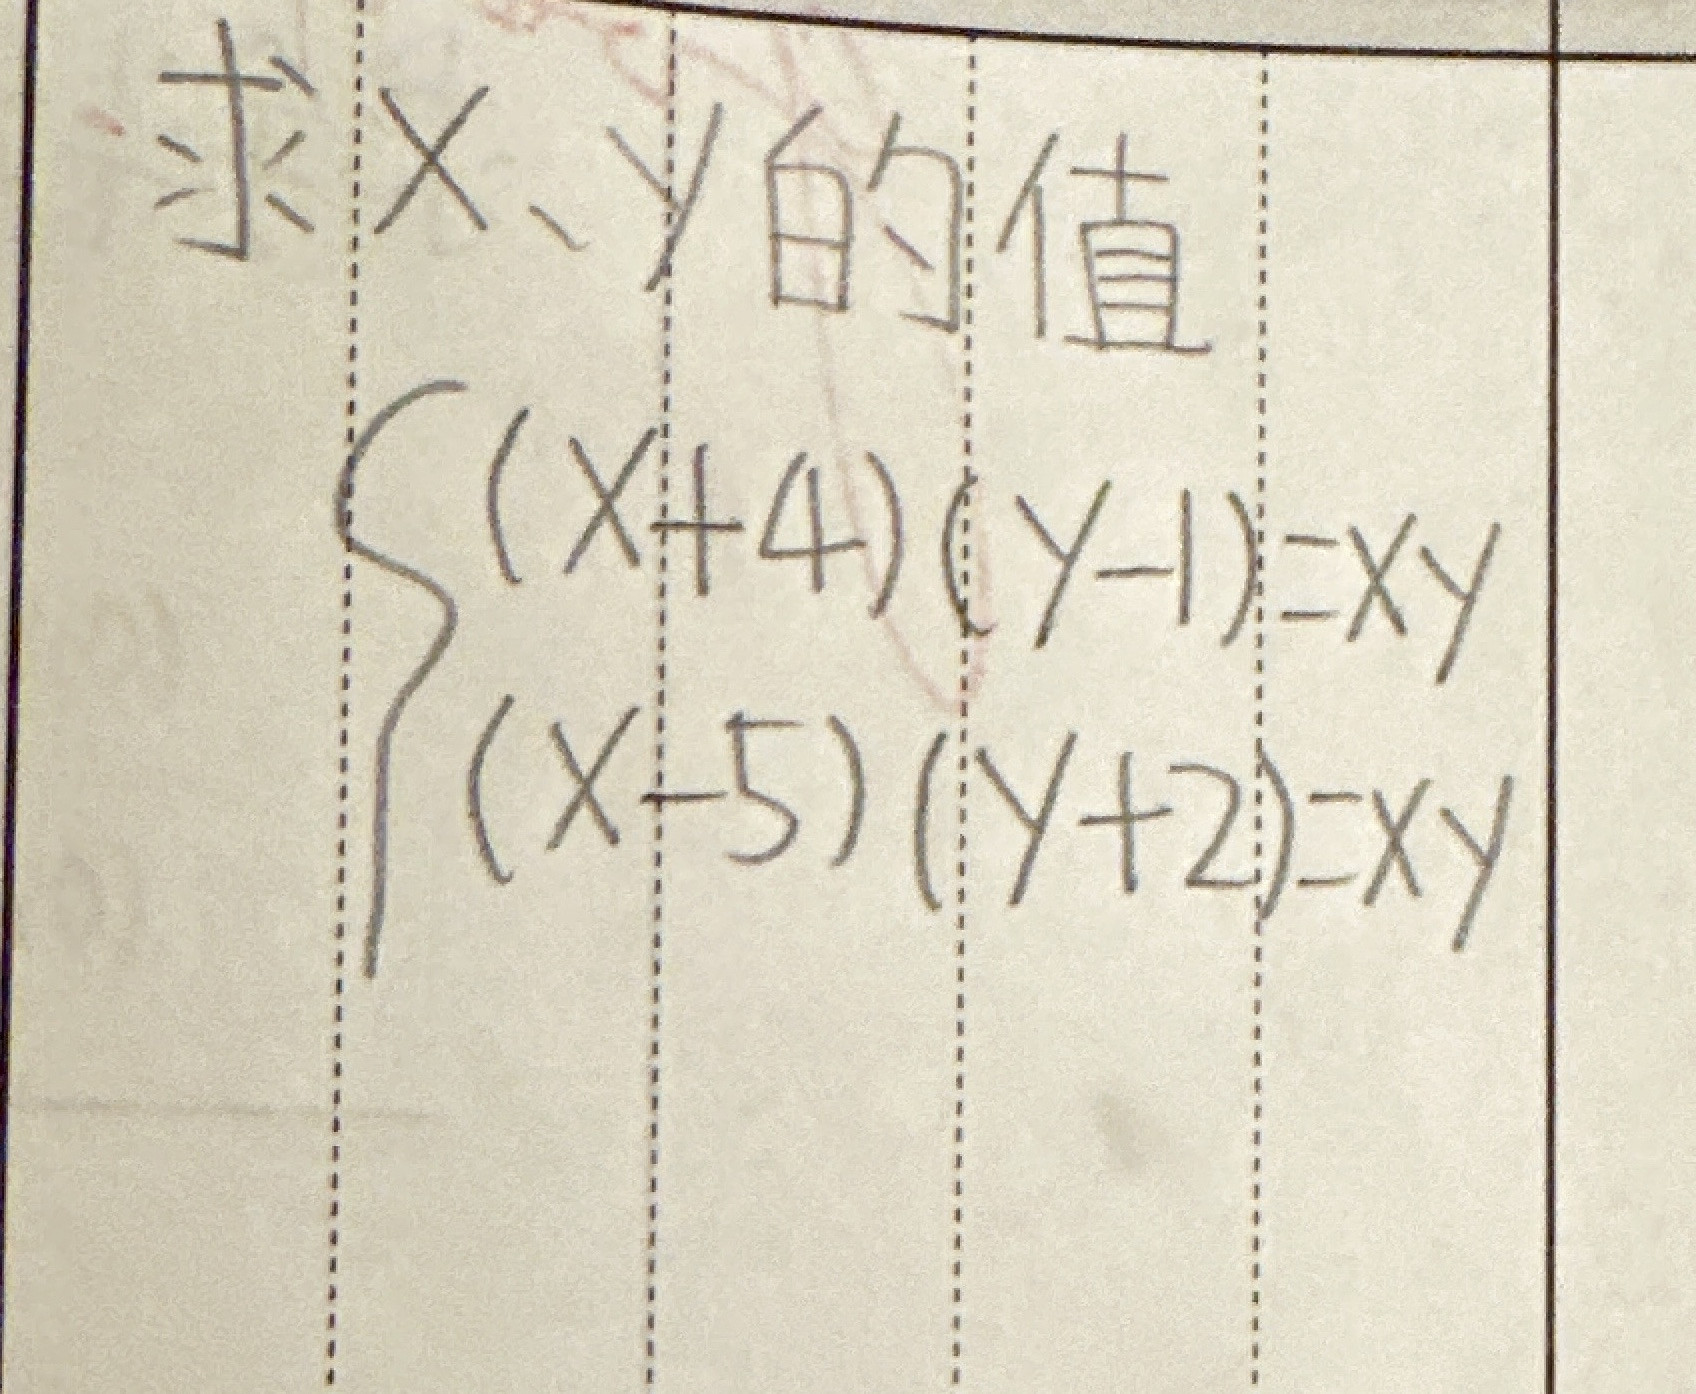 求X、y的值
(X+4)(y-1)=xy
(X-5)(y+2)=xy